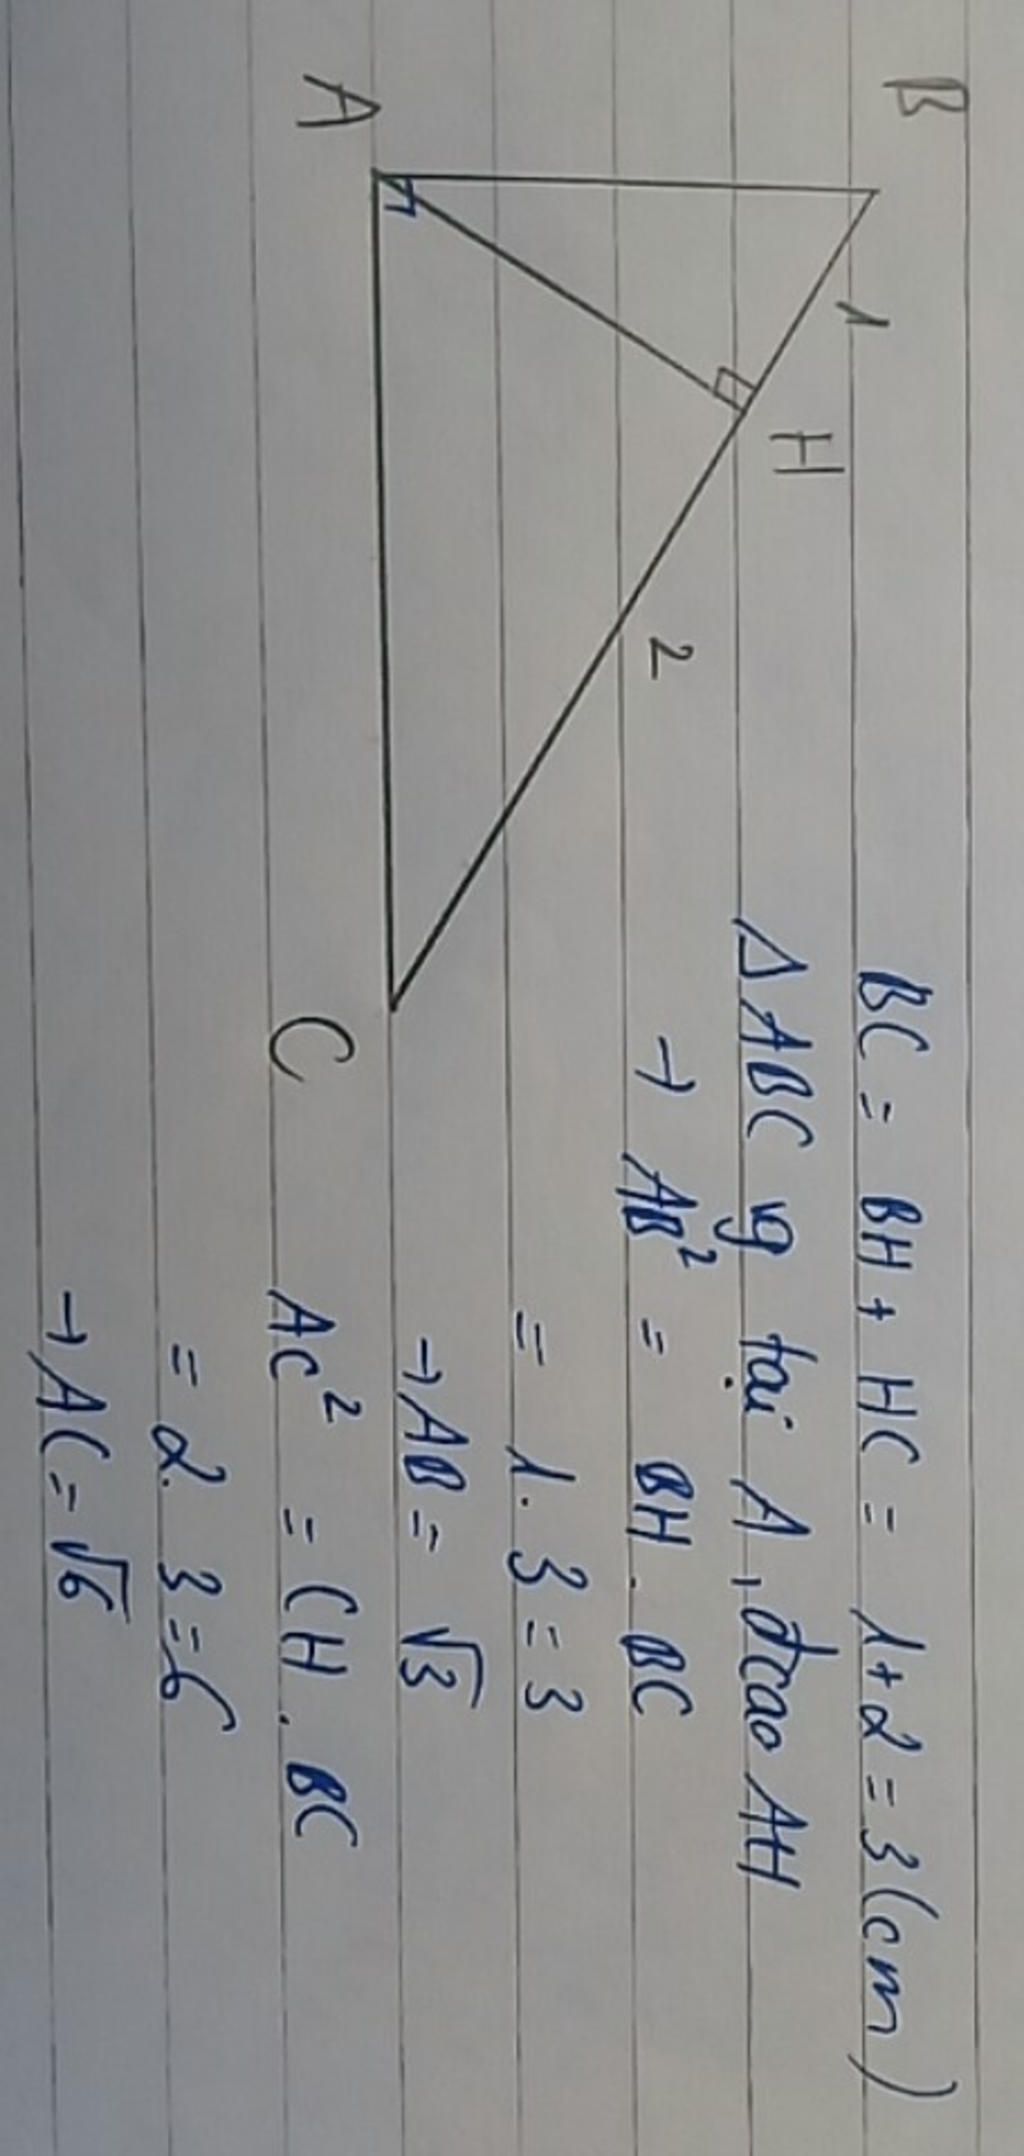 B
1
H
2
A
C
BC = BH + HC = 1+2 = 3 (cm)
Δ ABC vg tại A, đcao AH
→ AB² = BH . BC
= 1 . 3 = 3
→ AB = √3
AC² = CH . BC
= 2. 3 = 6
→ AC = √6